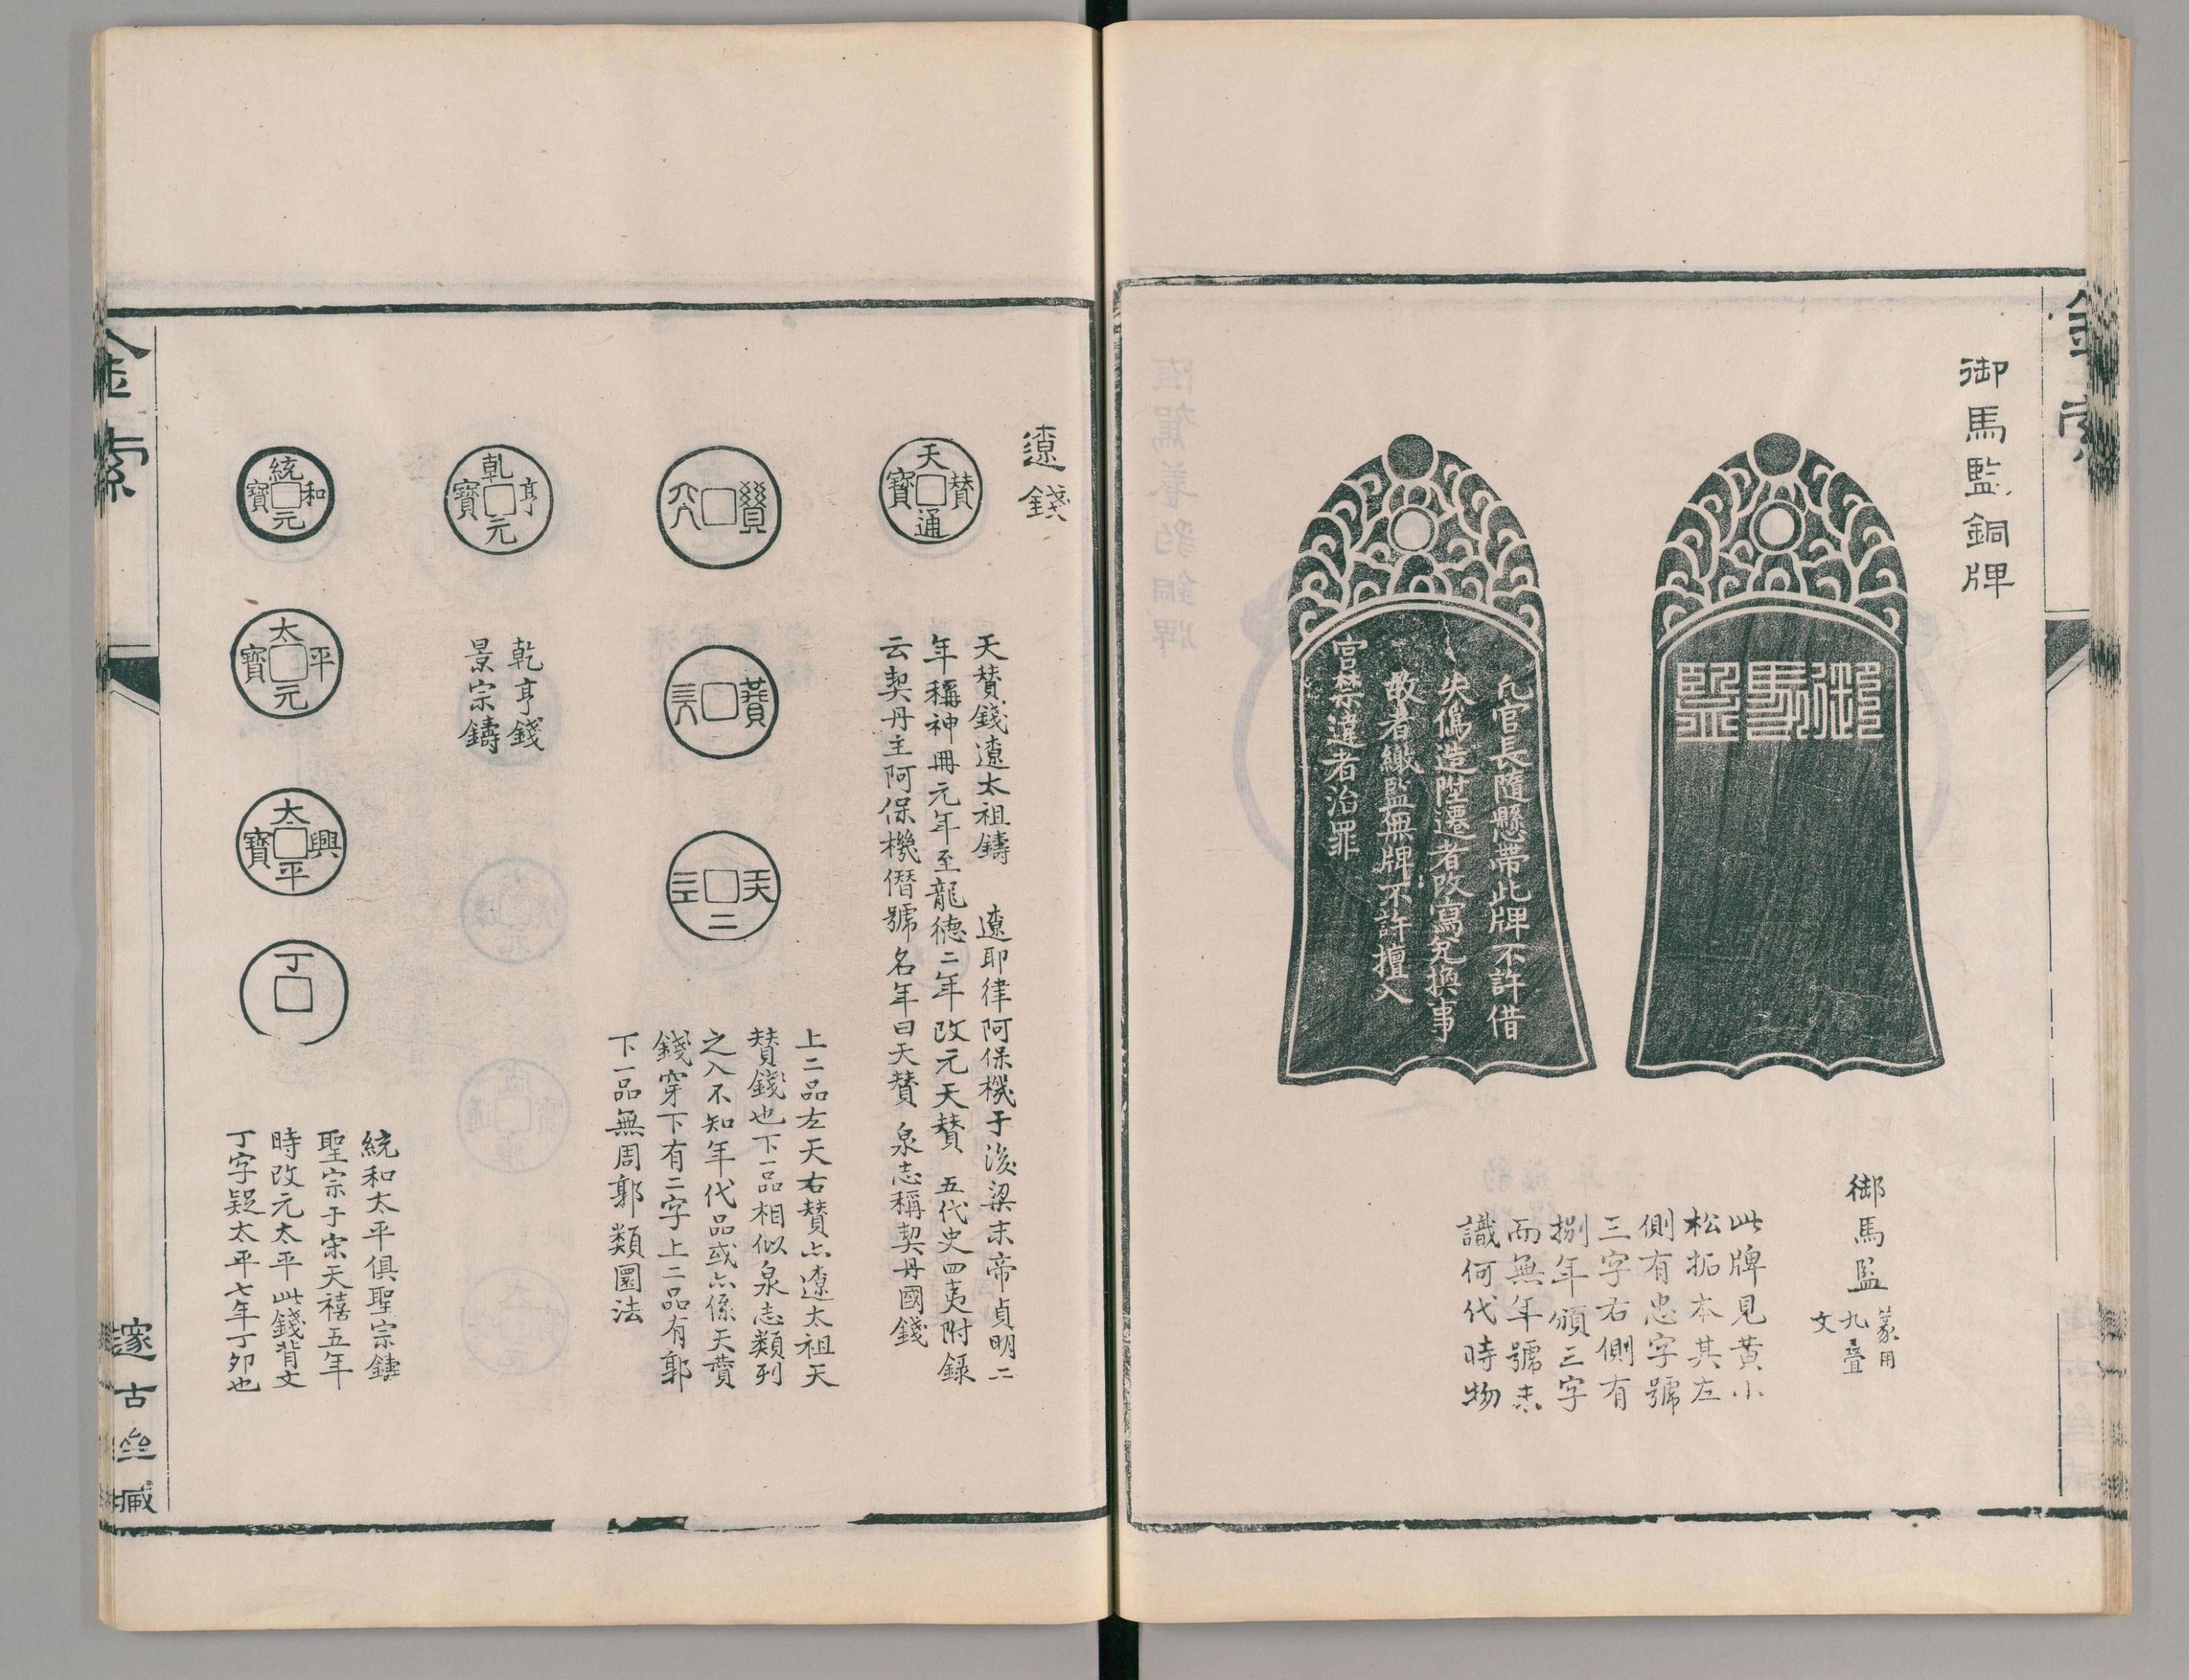 金索
御馬監銅牌
御馬監
凢官長隨懸帶此牌不許借
失僞造陞遷者改寫兌換事
故者繳監無牌不許擅入
宮禁違者治罪
御馬監
篆用
九疊
文
此牌見黄小
松拓本其左
側有忠字號
三字右側有
捌年頒三字
而無年號未
識何代時物
遼錢
天贊通寶
天贊錢遼太祖鑄 遼耶律阿保機于後梁末帝貞明二
年稱神冊元年至龍德二年改元天贊 五代史四夷附錄
云契丹主阿保機僭號名年曰天贊 泉志稱契丹國錢
天二
上二品左天右贊亦遼太祖天
贊錢也下一品相似泉志類列
之入不知年代品或亦係天贊
錢穿下有二字上二品有郭
下一品無周郭類圜法
乾亨元寶
乾亨錢
景宗鑄
統和元寶
太平元寶
太平興寶
丁
統和太平俱聖宗鑄
聖宗于宋天禧五年
時改元太平此錢背文
丁字疑太平七年丁卯也
金索
邃古齋藏